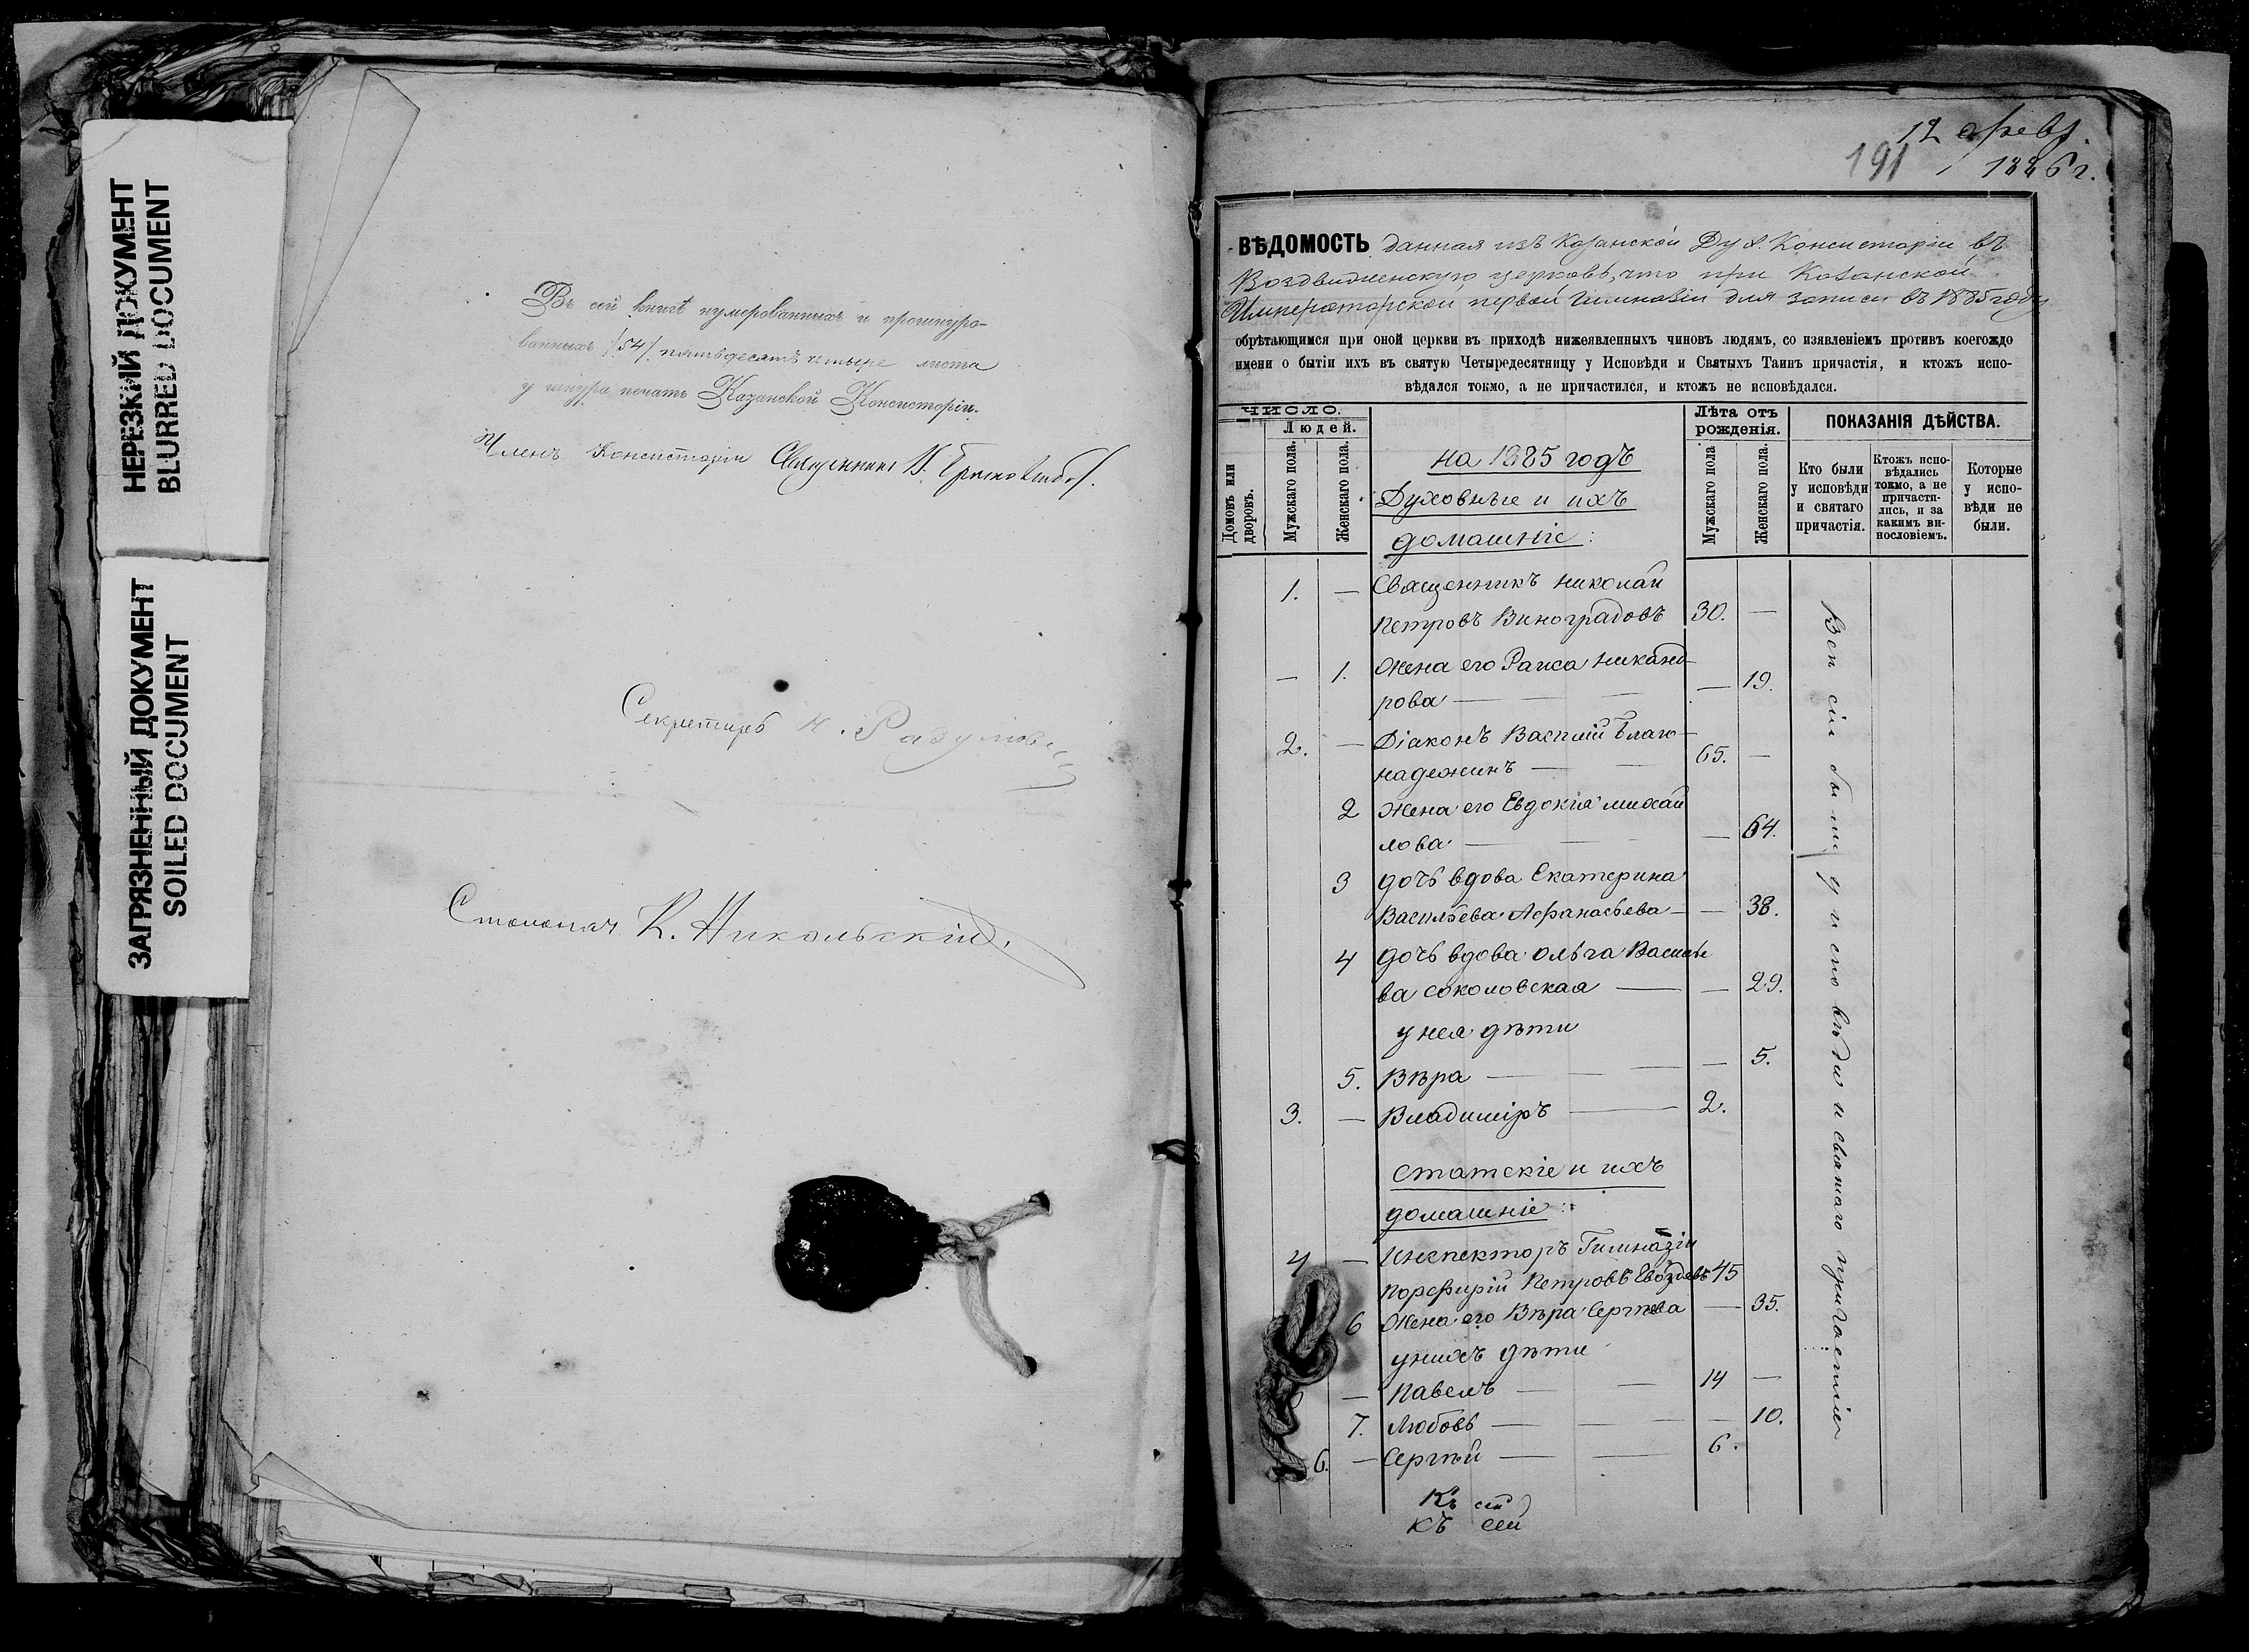 НЕРЕЗКИЙ ДОКУМЕНТ
BLURRED DOCUMENT
ЗАГРЯЗНЕННЫЙ ДОКУМЕНТ
SOILED DOCUMENT
Въ сей книгѣ нумерованныхъ и прошнуро-
ванныхъ /54/ пятьдесятъ четыре листа
у шнура печать Казанской Консисторіи.
Членъ Консисторіи Священникъ
Секретарь
Столонач. К. Никольскій
12 февр.
191 1886 г.
ВѢДОМОСТЬ данная изъ Казанской Дух. Консисторіи въ
Воздвиженскую церковь, что при Казанской
Императорской первой Гимназіи для записи въ 1885 году
обрѣтающимся при оной церкви въ приходѣ нижеявленныхъ чиновъ людямъ, со изявленіемъ противъ коегождо
имени о бытіи ихъ въ святую Четыредесятницу у Исповѣди и Святыхъ Таинъ причастія, и ктожъ испо-
вѣдался токмо, а не причастился, и ктожъ не исповѣдался.
ЧИСЛО.
Домовъ или дворовъ.
Людей.
Мужскаго пола.
Женскаго пола.
на 1885 годъ
Духовные и ихъ
домашніе:
Лѣта отъ рожденія.
Мужскаго пола
Женскаго пола.
ПОКАЗАНІЯ ДѢЙСТВА.
Кто были у исповѣди и святаго причастія.
Ктожъ испо-
вѣдались
токмо, а не
причасти-
лись, и за
какимъ ви-
нословіемъ.
Которые у испо-
вѣди не были.
1. — Священникъ Николай
Петровъ Виноградовъ 30. —
— 1. Жена его РаисаНиканд-
рова — — 19.
2. — Діаконъ Василій Благо-
надежинъ — 65. —
2 Жена его Евдокія Михай
лова — — 64.
3 дочь вдова Екатерина
Васильева Афанасьева — — 38.
4 дочь вдова Ольга Василье
ва Соколовская — — 29.
у нея дѣти
5. Вѣра — — 5.
3. — Владиміръ — 2.
Статскіе и ихъ
домашніе:
4 — Инспекторъ Гимназіи
Порфирій Петровъ 45
6 Жена его Вѣра Сергѣева — 35.
у нихъ дѣти
— Павелъ — 14 —
7. Любовь — — 10.
6. — Сергѣй — 6.
Всѣ сіи были у исповѣди и святаго причастія
Къ сей
Къ сей